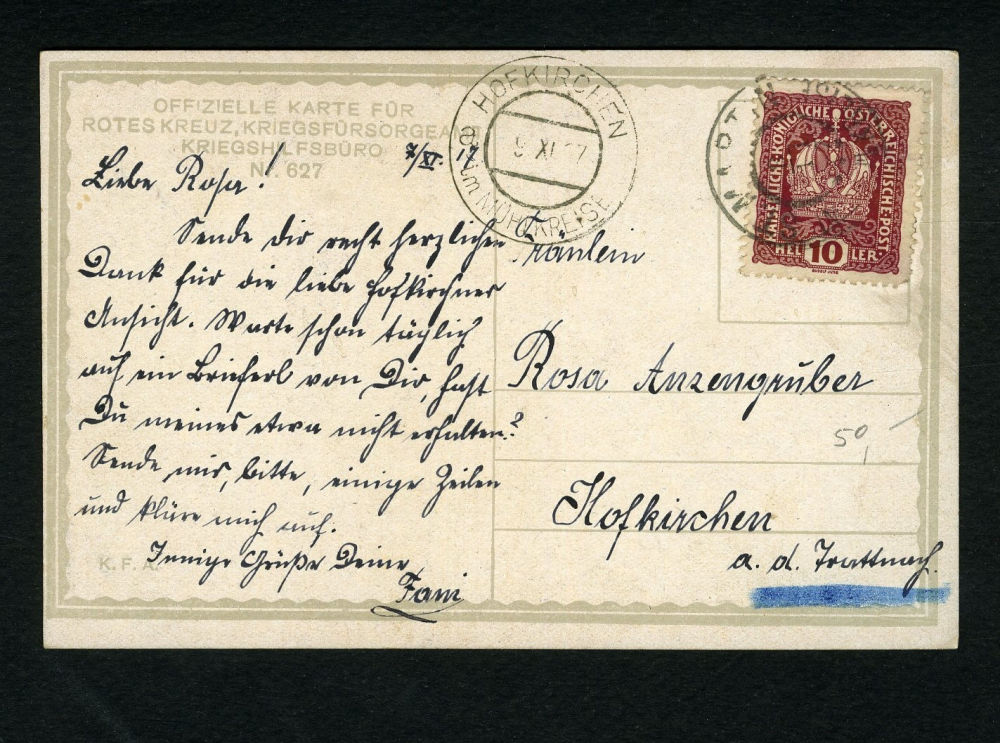 OFFIZIELLE KARTE FÜR
ROTES KREUZ, KRIEGSFÜRSORGEAMT
KRIEGSHILFSBÜRO
Nr. 627
7/XI 17
Liebe Rosa!
Sende dir recht herzlichen
Dank für die liebe Hofkirchner
Ansicht. Warte schon täglich
auf ein Brieferl von Dir, hast
Du meines etwa nicht erhalten?
Sende mir, bitte, einige Zeilen
und kläre mich auf.
Innige Grüße Deine
Fani
K.F.A.
HOFKIRCHEN
9 XI 17
im MÜHLKREISE
KAISERLICHE KÖNIGLICHE ÖSTERREICHISCHE POST
HELLER
10
Fräulein
Rosa Anzengruber
50
Hofkirchen
a. d. Trattnach.